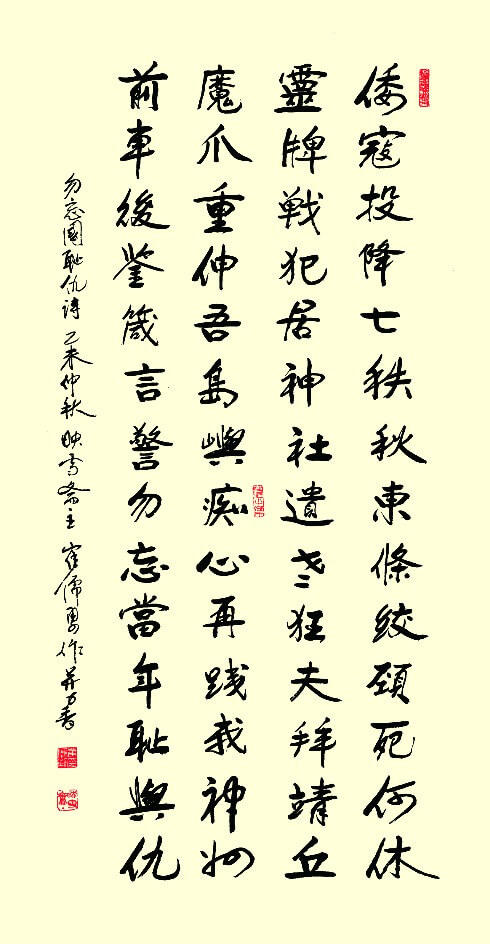 倭寇投降七秩秋東條絞頸死何休
靈牌戦犯居神社遺老狂夫拜靖丘
魔爪重伸吾島嶼痴心再践我神州
前車後鑒箴言警勿忘當年耻與仇
勿忘國耻仇詩 乙未仲秋 映雪齋主 崔儒 作并書